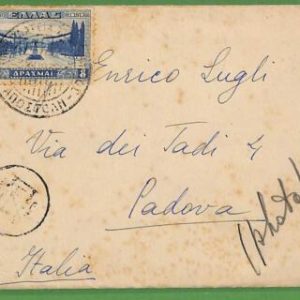 ΕΛΛΑΣ
ΔΡΑΧΜΑΙ 8
Enrico Lugli
Via dei Tadi 4
Padova
Italia